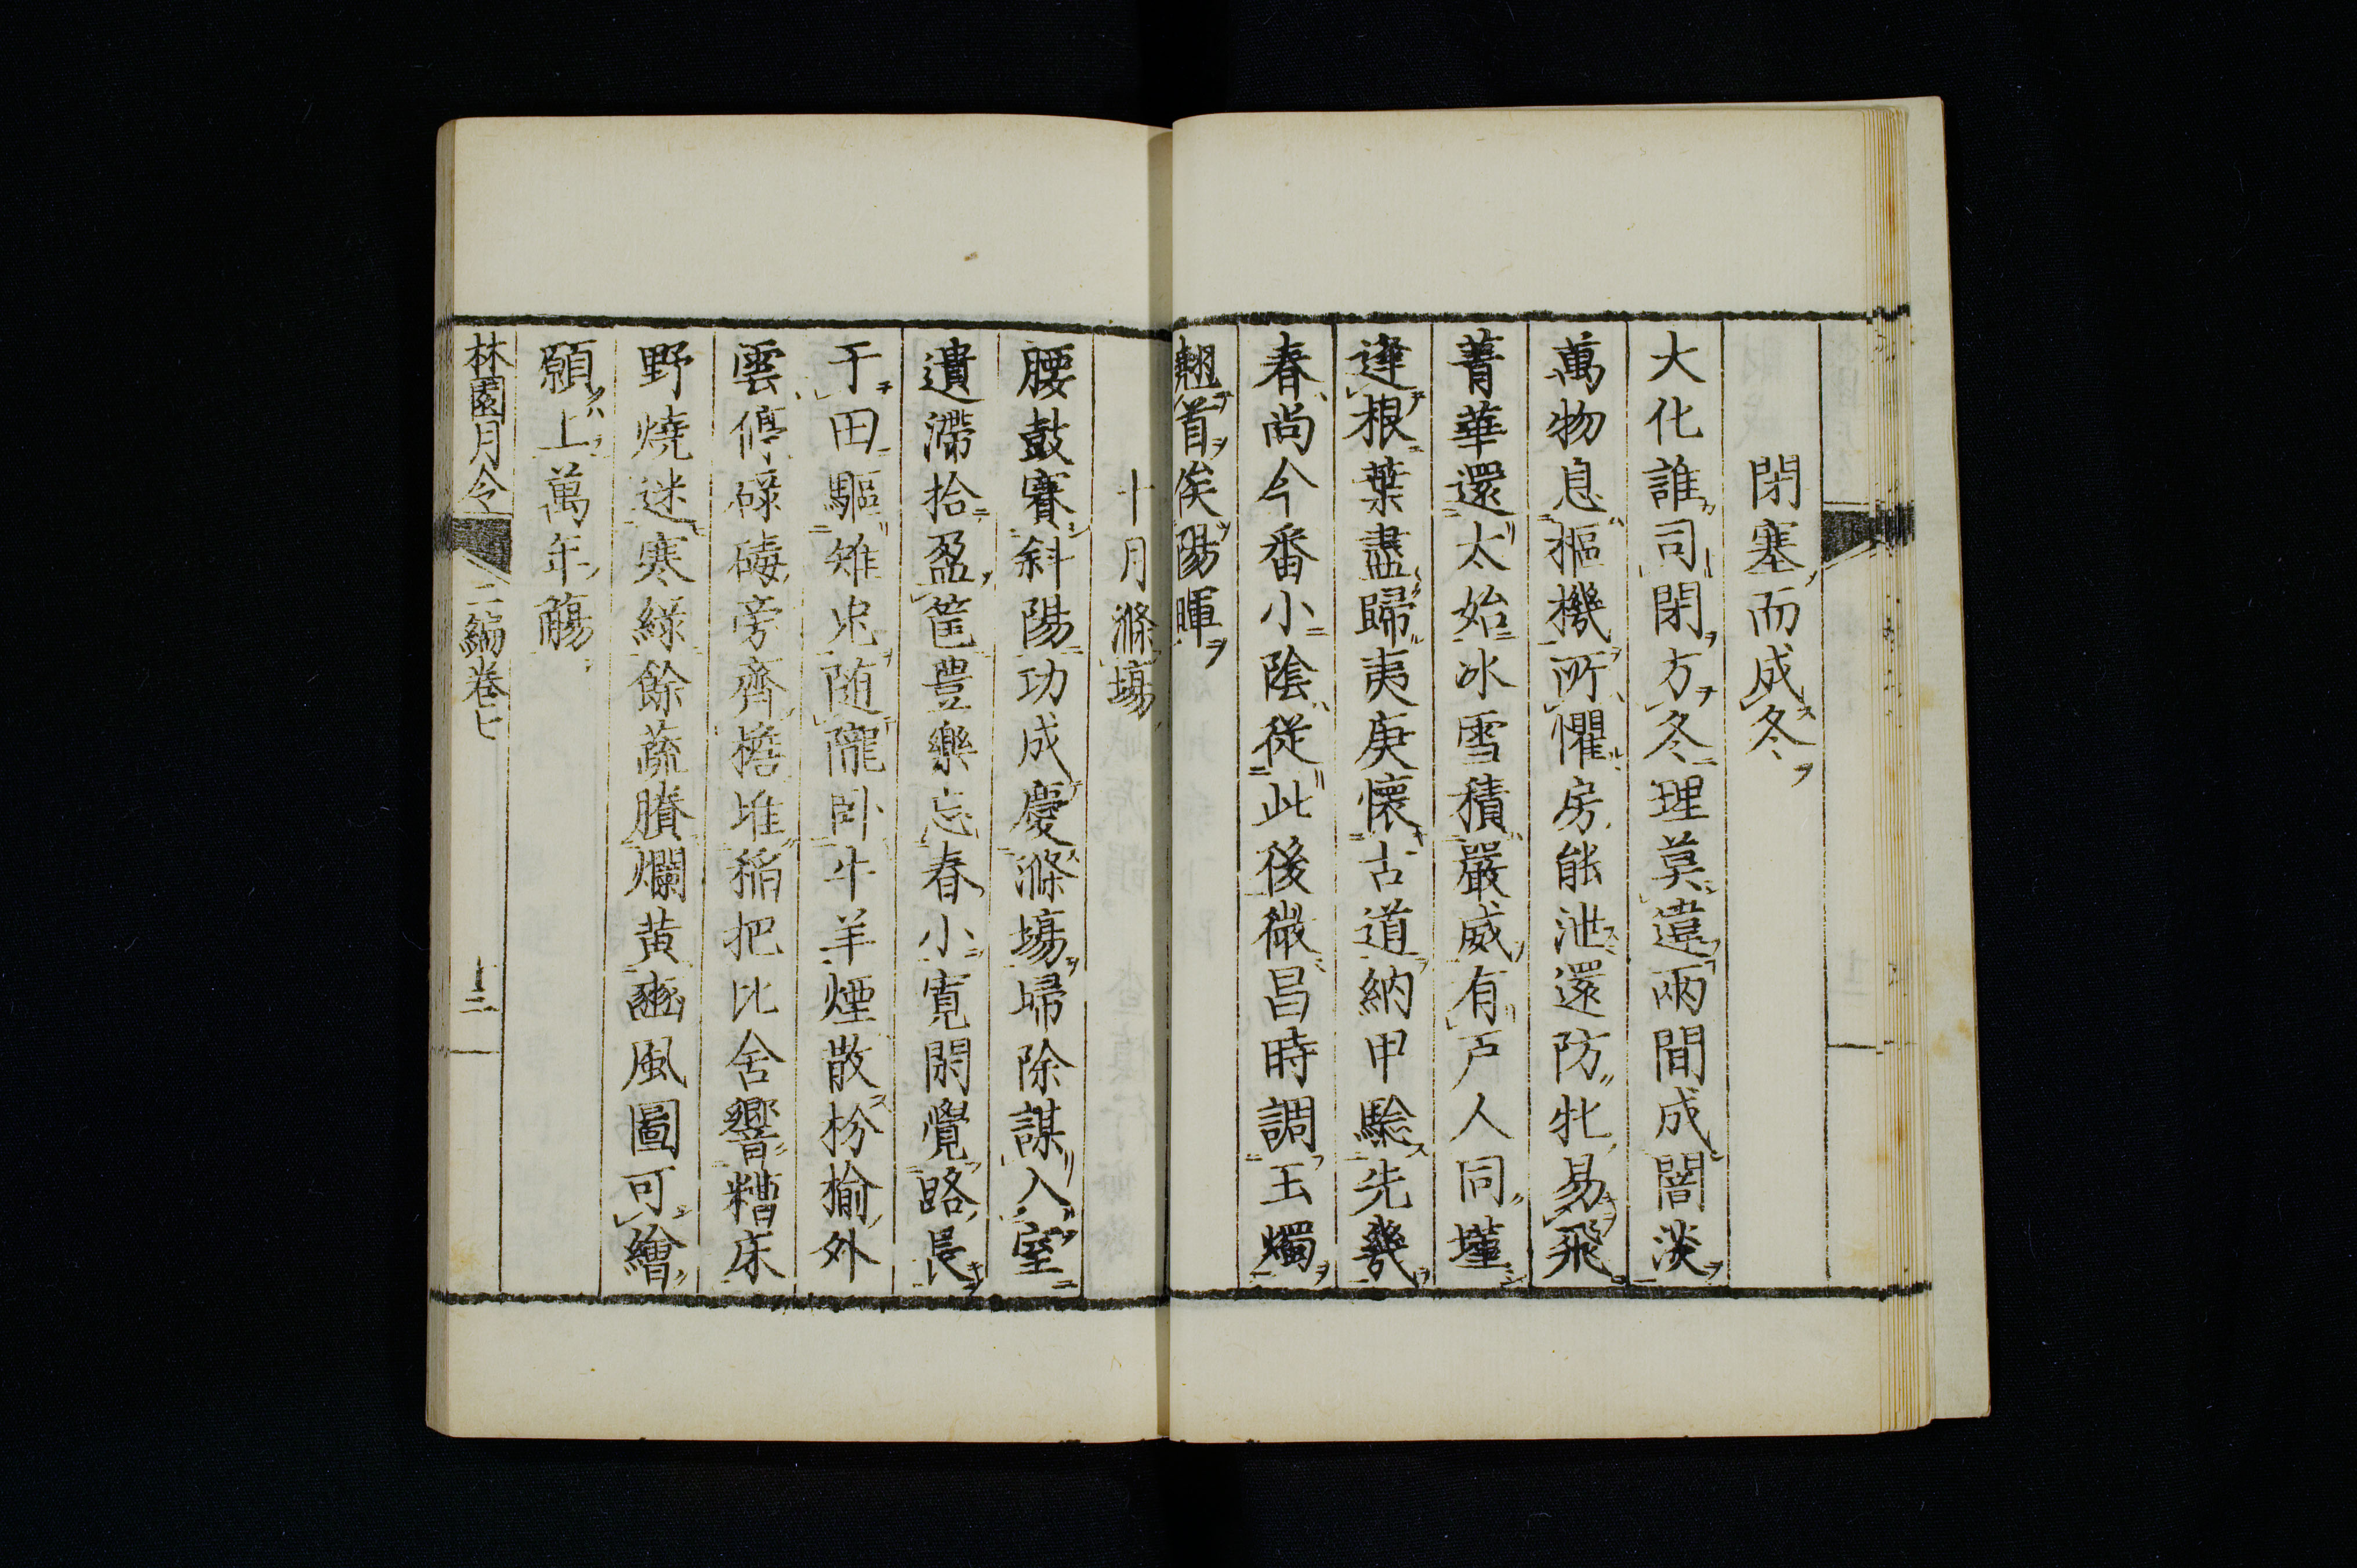 閉塞而成冬
大化誰司閉方冬理莫違兩間成闇淡
萬物息樞機所懼房能泄還防牝易飛
菁華還太始冰雪積嚴威有戸人同墐
達根葉盡歸夷庚懐古道納甲驗先幾
春尚今番小陰従此後微昌時調玉燭
翹首俟陽暉
十月滌場
腰鼓賽斜陽功成慶滌場歸除謀入室
遺滯拾盈筐豊樂忘春小寛閑覺路長
于田驅雉兎随隴卧牛羊煙散枌楡外
雲停碌碡旁齊檐堆稲把比舎響糟床
野燒迷寒緑餘蔬賸爛黄豳風圖可繪
願上萬年觴
林園月令
二編巻七
十二